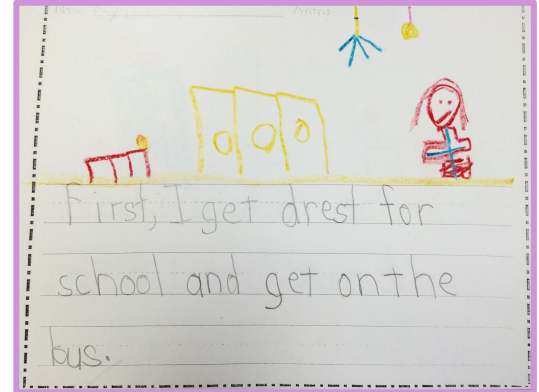 First, I get drest for
school and get on the
bus.